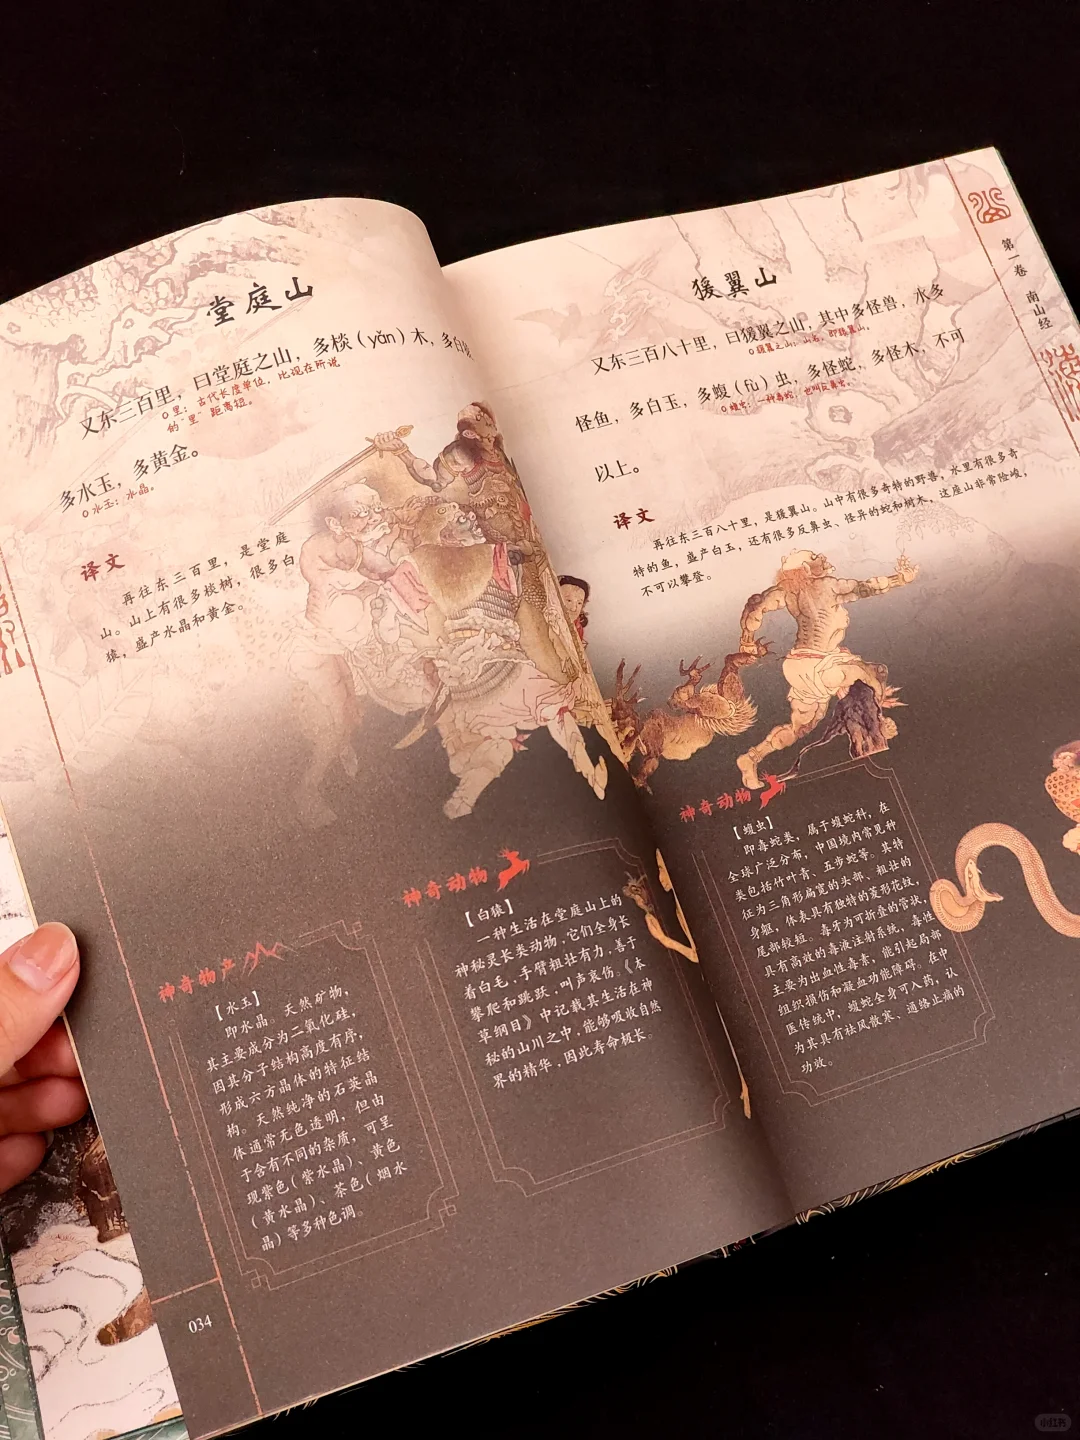 堂庭山
又东三百里，曰堂庭之山，多棪（yǎn）木，多白猿，
里：古代长度单位，比现在所说
的“里”距离短。
多水玉，多黄金。
水玉：水晶。
译文
再往东三百里，是堂庭
山。山上有很多棪树，很多白
猿，盛产水晶和黄金。
神奇物产
【水玉】
即水晶。天然矿物，
其主要成分为二氧化硅，
因其分子结构高度有序，
形成六方晶体的特征结
构。天然纯净的石英晶
体通常无色透明，但由
于含有不同的杂质，可呈
现紫色（紫水晶）、黄色
（黄水晶）、茶色（烟水
晶）等多种色调。
神奇动物
【白猿】
一种生活在堂庭山上的
神秘灵长类动物，它们全身长
着白毛，手臂粗壮有力，善于
攀爬和跳跃，叫声哀伤。《本
草纲目》中记载其生活在神
秘的山川之中，能够吸收自然
界的精华，因此寿命极长。
034
猨翼山
又东三百八十里，曰猨翼之山，其中多怪兽，水多
猨翼之山：山名，即猿翼山。
怪鱼，多白玉，多蝮（fù）虫，多怪蛇，多怪木，不可
蝮虫：一种毒蛇，也叫反鼻虫。
以上。
译文
再往东三百八十里，是猨翼山。山中有很多奇特的野兽，水里有很多奇
特的鱼，盛产白玉，还有很多反鼻虫、怪异的蛇和树木，这座山非常险峻，
不可以攀登。
神奇动物
【蝮虫】
即毒蛇类，属于蝮蛇科，在
全球广泛分布，中国境内常见种
类包括竹叶青、五步蛇等。其特
征为三角形扁宽的头部、粗壮的
身躯，体表具有独特的菱形花纹，
尾部较短。毒牙为可折叠的管状，
具有高效的毒液注射系统，毒性
主要为出血性毒素，能引起局部
组织损伤和凝血功能障碍。在中
医传统中，蝮蛇全身可入药，认
为其具有祛风散寒、通络止痛的
功效。
第一卷 南山经
小红书